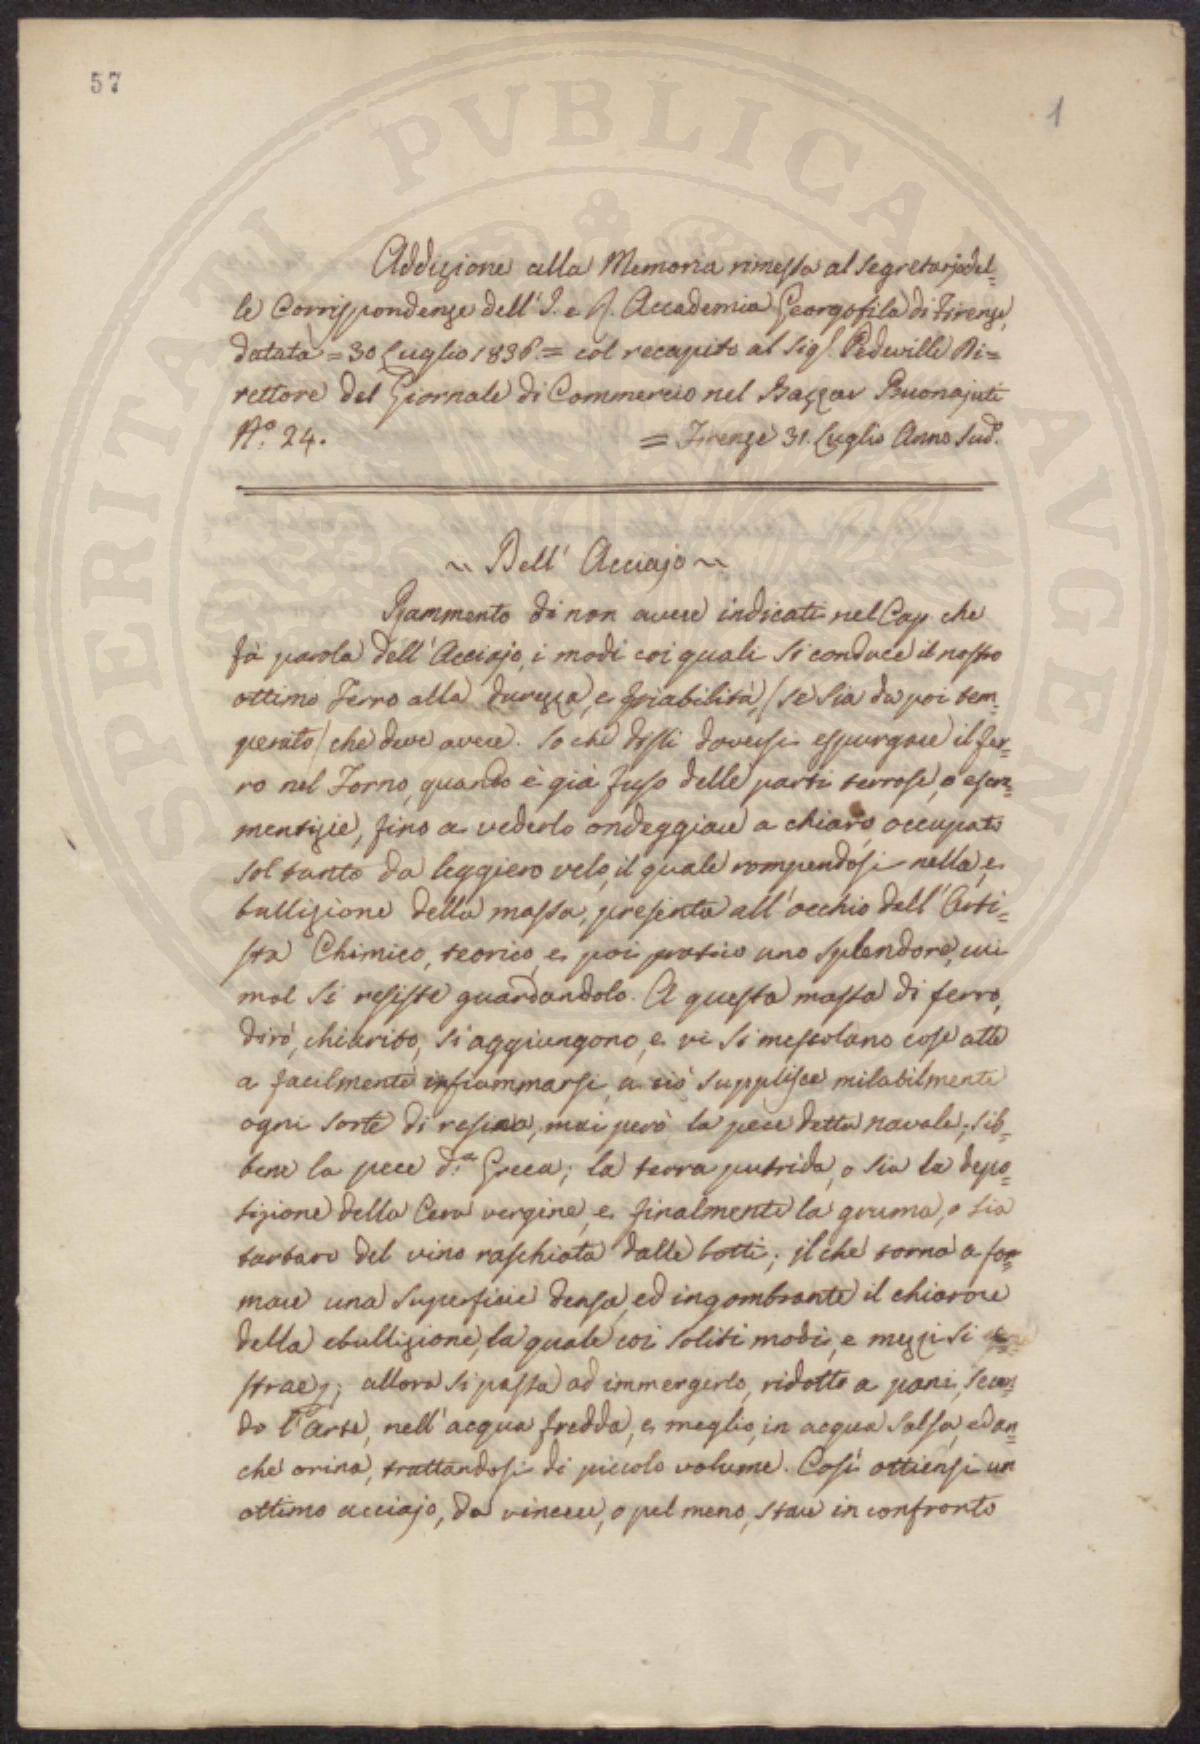 57
1
Addizione alla Memoria rimessa al Segretario del=
le Corrispondenze dell'I. e R. Accademia Georgofila di Firenze,
datata = 30 Luglio 1836. = col recapito al Sig.r Pedevilli Di=
rettore del Giornale di Commercio nel Bazzar Buonajuti
N.o 24. = Firenze 31. Luglio Anno Sud.o
~ Dell' Acciajo ~
Rammento di non avere indicati nel Cap. che
fà parola dell'Acciajo, i modi coi quali si conduce il nostro
ottimo Ferro alla durezza, e friabilità, (se sia da poi tem=
perato) che deve avere. So che dissi doversi espurgare il fer=
ro nel Forno, quando è già fuso delle parti terrose, o escre=
mentizie, fino a vederlo ondeggiare a chiaro, occupato
soltanto da leggiero velo, il quale rompendosi nella e=
bullizione della massa, presenta all'occhio dell'Arti=
sta Chimico, teorico, e poi pratico uno splendore, cui
mal si resiste guardandolo. A questa massa di ferro,
dirò, chiarito, si aggiungono, e vi si mescolano cose atte
a facilmente infiammarsi, a ciò supplisce milabilmente
ogni sorte di resina, mai però la pece detta navale; sib=
bene la pece d.a Greca; la terra putrida, o sia la depo=
sizione della Cera vergine, e finalmente la gruma, o sia
tartaro del vino raschiata dalle botti; il che torna a for=
mare una superficie densa, ed ingombrante il chiarore
della ebullizione, la quale coi soliti modi, e mezzi si
strae; allora si passa ad immergerlo, ridotto a pani, secon=
do l'Arte, nell'acqua fredda, e meglio, in acqua salsa, ed an=
che orina, trattandosi di piccolo volume. Così ottiensi un
ottimo acciajo, da vincere, o pel meno, stare in confronto
PUBLICAE
PROSPERITATI AUGENDAE